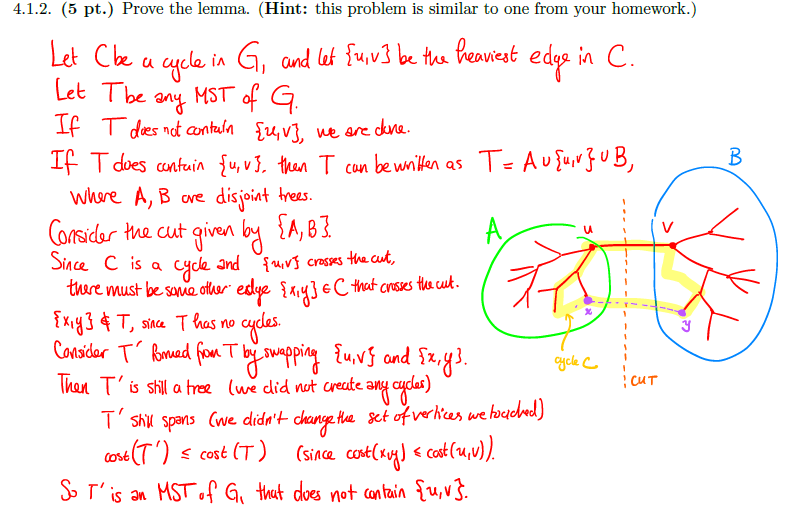 4.1.2. (5 pt.) Prove the lemma. (Hint: this problem is similar to one from your homework.)
Let C be a cycle in G, and let {u,v} be the heaviest edge in C.
Let T be any MST of G.
If T does not contain {u,v}, we are done.
If T does contain {u,v}, then T can be written as T = A ∪ {u,v} ∪ B,
where A, B are disjoint trees.
Consider the cut given by {A,B}.
Since C is a cycle and {u,v} crosses the cut,
there must be some other edge {x,y} ∈ C that crosses the cut.
{x,y} ∉ T, since T has no cycles.
Consider T' formed from T by swapping {u,v} and {x,y}.
Then T' is still a tree (we did not create any cycles)
T' still spans (we didn't change the set of vertices we touched)
cost(T') ≤ cost(T) (since cost(x,y) ≤ cost(u,v)).
So T' is an MST of G, that does not contain {u,v}.
A
B
u
v
x
y
cycle C
CUT